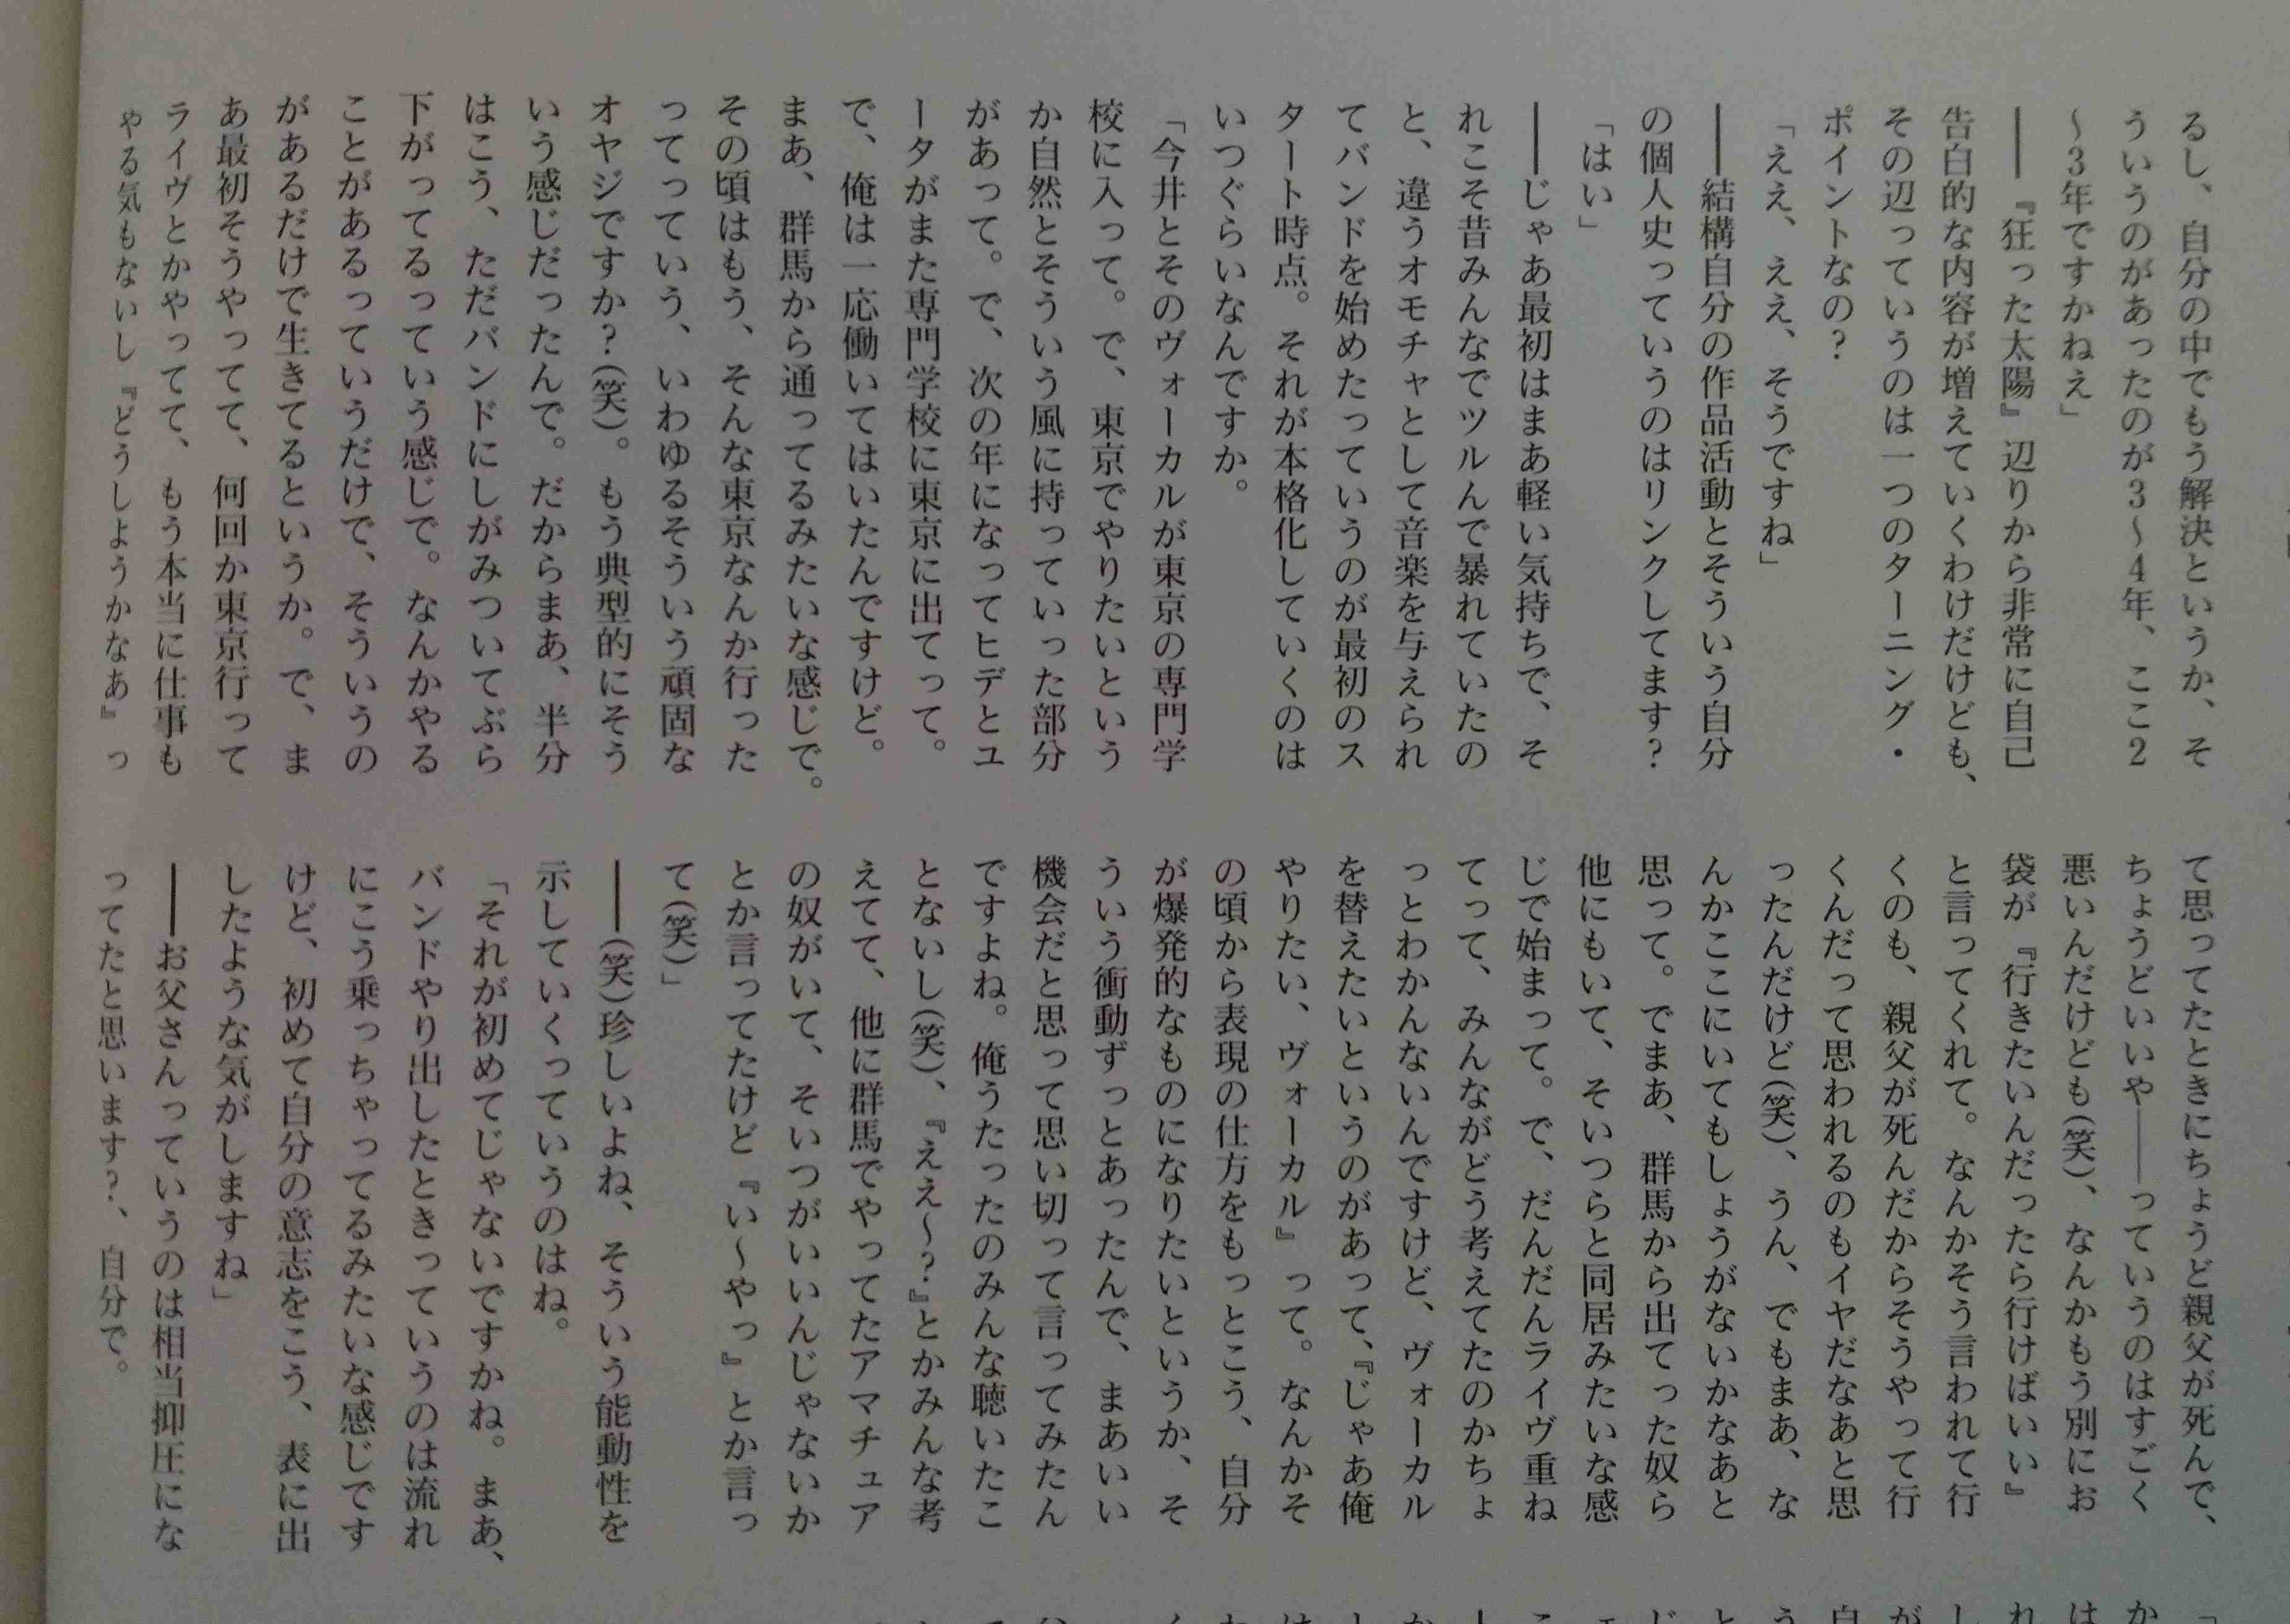 るし、自分の中でもう解決というか、そ
ういうのがあったのが3〜4年、ここ2
〜3年ですかねえ」
――『狂った太陽』辺りから非常に自己
告白的な内容が増えていくわけだけども、
その辺っていうのは一つのターニング・
ポイントなの？
「ええ、ええ、そうですね」
――結構自分の作品活動とそういう自分
の個人史っていうのはリンクしてます？
「はい」
――じゃあ最初はまあ軽い気持ちで、そ
れこそ昔みんなでツルんで暴れていたの
と、違うオモチャとして音楽を与えられ
てバンドを始めたっていうのが最初のス
タート時点。それが本格化していくのは
いつぐらいなんですか。
「今井とそのヴォーカルが東京の専門学
校に入って。で、東京でやりたいという
か自然とそういう風に持っていった部分
があって。で、次の年になってヒデとユ
ータがまた専門学校に東京に出てって。
で、俺は一応働いてはいたんですけど。
まあ、群馬から通ってるみたいな感じで。
その頃はもう、そんな東京なんか行った
ってっていう、いわゆるそういう頑固な
オヤジですか？(笑)。もう典型的にそう
いう感じだったんで。だからまあ、半分
はこう、ただバンドにしがみついてぶら
下がってるっていう感じで。なんかやる
ことがあるっていうだけで、そういうの
があるだけで生きてるというか。で、ま
あ最初そうやってて、何回か東京行って
ライヴとかやってて、もう本当に仕事も
やる気もないし『どうしようかなあ』っ
て思ってたときにちょうど親父が死んで、
ちょうどいいや――っていうのはすごく
悪いんだけども(笑)、なんかもう別にお
袋が『行きたいんだったら行けばいい』
と言ってくれて。なんかそう言われて行
くのも、親父が死んだからそうやって行
くんだって思われるのもイヤだなあと思
ったんだけど(笑)、うん、でもまあ、な
んかここにいてもしょうがないかなあと
思って。でまあ、群馬から出てった奴ら
他にもいて、そいつらと同居みたいな感
じで始まって。で、だんだんライヴ重ね
てって、みんながどう考えてたのかちょ
っとわかんないんですけど、ヴォーカル
を替えたいというのがあって、『じゃあ俺
やりたい、ヴォーカル』って。なんかそ
の頃から表現の仕方をもっとこう、自分
が爆発的なものになりたいというか、そ
ういう衝動ずっとあったんで、まあいい
機会だと思って思い切って言ってみたん
ですよね。俺うたったのみんな聴いたこ
とないし(笑)、『ええ〜？』とかみんな考
えてて、他に群馬でやってたアマチュア
の奴がいて、そいつがいいんじゃないか
とか言ってたけど『い〜やっ』とか言っ
て(笑)」
――(笑)珍しいよね、そういう能動性を
示していくっていうのはね。
「それが初めてじゃないですかね。まあ、
バンドやり出したときっていうのは流れ
にこう乗っちゃってるみたいな感じです
けど、初めて自分の意志をこう、表に出
したような気がしますね」
――お父さんっていうのは相当抑圧にな
ってたと思います？、自分で。